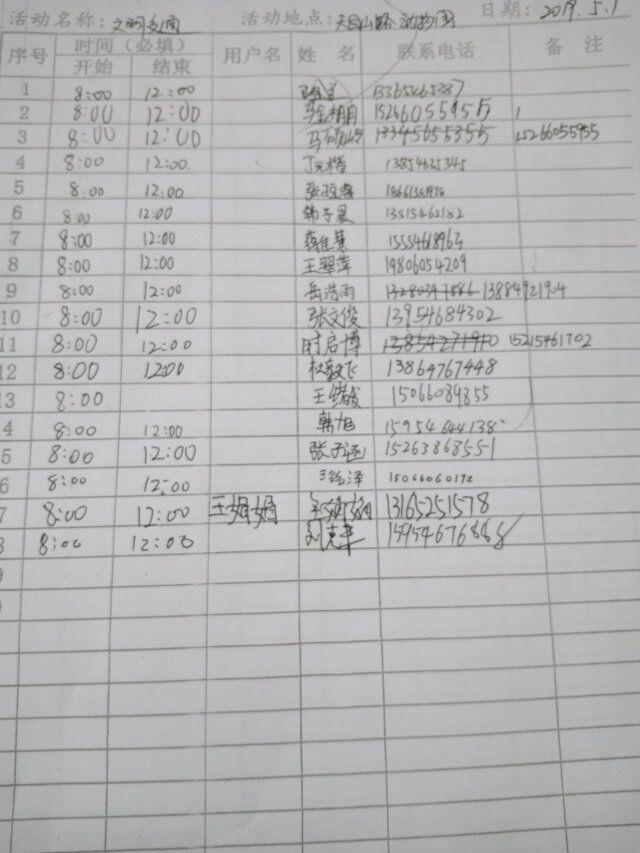 活动名称：文明交通 活动地点：天目山路 动物园 日期：2019.5.1
序号 时间（必填） 用户名 姓 名 联系电话 备 注
开始 结束
1 8:00 12:00
2 8:00 12:00 15266055955
3 8:00 12:00 13345655355 15266055955
4 8:00 12:00 13854635345
5 8:00 12:00
6 8:00 12:00 韩子晨 13515462182
7 8:00 12:00 15554618963
8 8:00 12:00 王翠萍 19806054209
9 8:00 12:00 岳浩雨 13884921904
10 8:00 12:00 张文俊 13954684302
11 8:00 12:00 时启博 15215461702
12 8:00 12:00 13864767448
13 8:00 15066084855
4 8:00 12:00 韩旭 15954644138
5 8:00 12:00 张子涵 15263868551
6 8:00 12:00 王铭泽 15066060172
7 8:00 12:00 王娟娟 13165251578
8 8:00 12:00 刘克华 15954676888